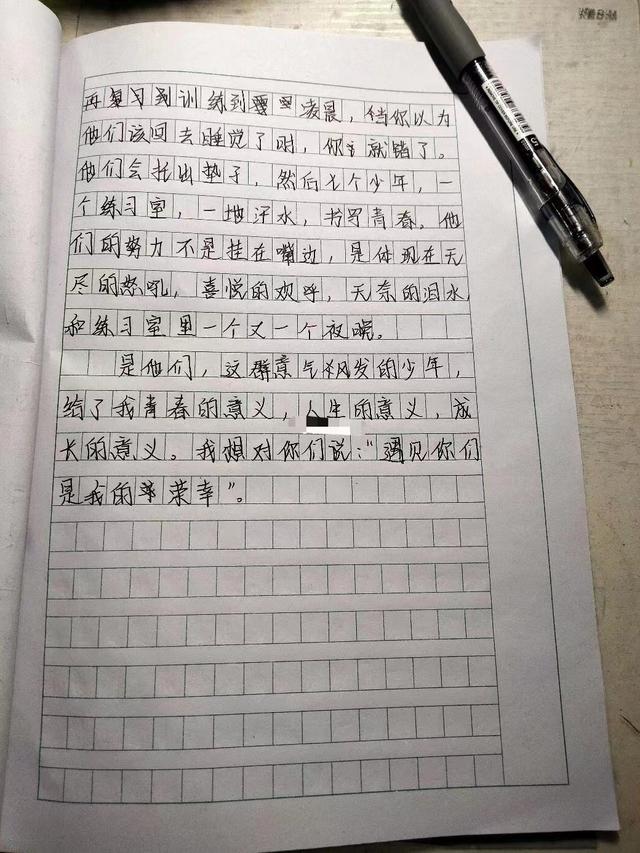 再复习到训练到凌晨，当你以为
他们该回去睡觉了时，你就错了。
他们会拖出垫子，然后七个少年，一
个练习室，一地汗水，书写青春。他
们的努力不是挂在嘴边，是体现在无
尽的怒吼，喜悦的欢呼，无奈的泪水，
和练习室里一个又一个夜晚。
是他们，这群意气风发的少年，
给了我青春的意义，人生的意义，成
长的意义。我想对你们说："遇见你们
是我的荣幸"。